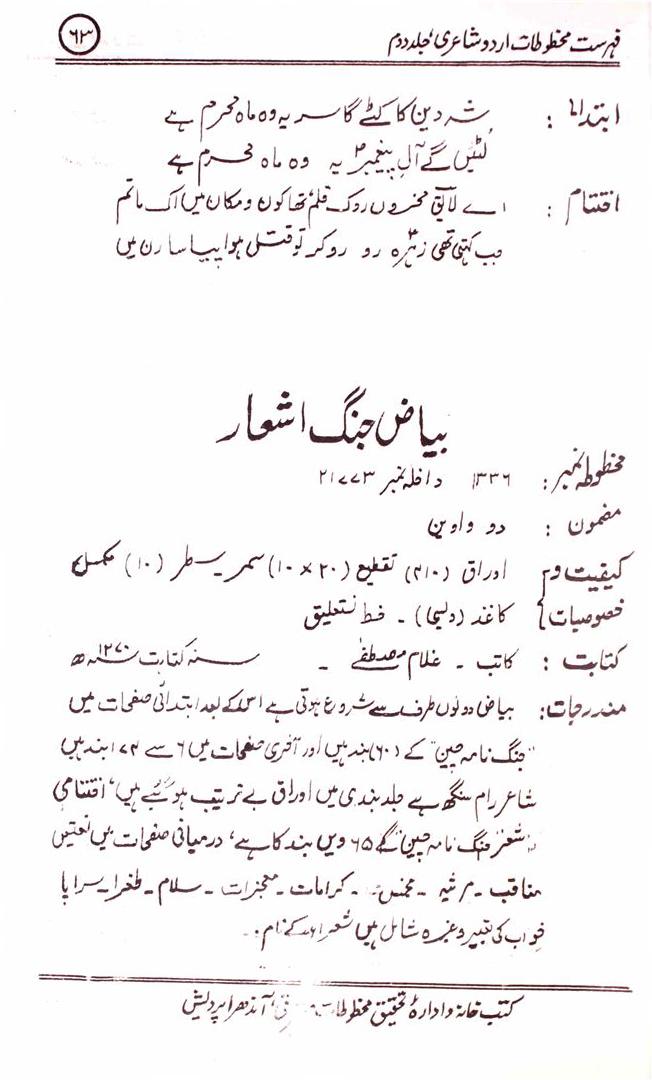 فہرست مخطوطات اردو شاعری، جلد دوم ۶۳
ابتداء : شہ دین کا کٹے گا سر یہ وہ ماہ محرم ہے
لٹیں گے آلِ پیغمبرؐ یہ وہ ماہ محرم ہے
اختتام : اے لائق محزوں روک قلم تھا کون و مکان میں اک ماتم
جب کہتی تھی زہرہؑ رو رو کر تو قتل ہوا پیاسا رن میں
بیاض جنگ اشعار
مخطوطہ نمبر : ۱۳۳۶ داخلہ نمبر ۲۱۷۷۳
مضمون : دو واوین
کیفیت و اوراق (۲۱۰) تقطیع (۲۰ × ۱۰) سمر۔ سطر (۱۰) مکمل
خصوصیات کاغذ (دلیسی) ۔ خط نستعلیق
کتابت : کاتب ۔ غلام مصطفٰے ۔ سنہ کتابت ۱۲۷۰ھ
مندرجات : بیاض دونوں طرف سے شروع ہوتی ہے اس کے بعد ابتدائی صفحات میں
"جنگ نامہ چین" کے (۶۰) بند ہیں اور آخری صفحات میں ۶ سے ۱۷۴ بند ہیں
شاعر رام سنگھ ہے جلد بندی میں اوراق بے ترتیب ہو گئے ہیں، اختتامی
شعر "جنگ نامہ چین" کے ۶۵ ویں بند کا ہے، درمیانی صفحات میں نعتیں
مناقب ۔ مرثیہ ۔ مخمس ۔ کرامات ۔ معجزات ۔ سلام ۔ طغرا ۔ سراپا
خواب کی تعبیر وغیرہ شامل ہیں شعراء کے نام۔
کتب خانہ و ادارۂ تحقیق مخطوطات آندھرا پردیش